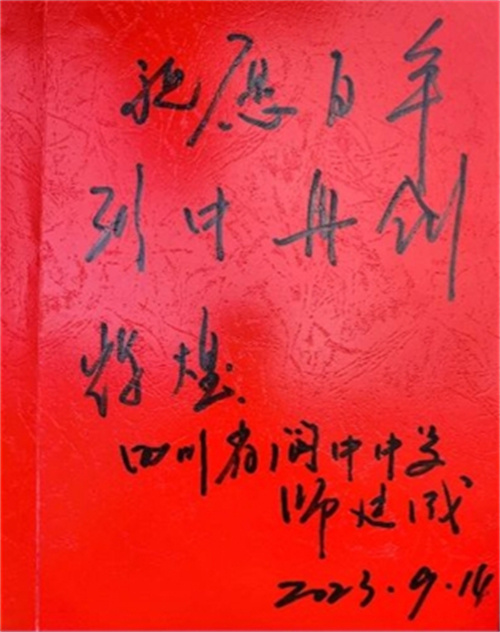 祝愿百年
刘中再创
辉煌
四川省阆中中学
师建成
2023.9.14